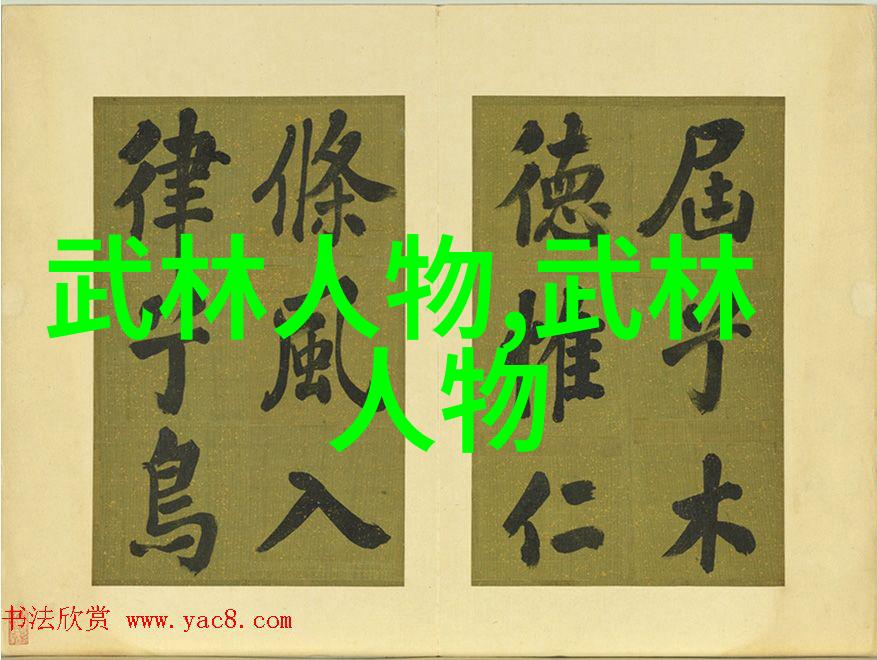 屆木
德惟仁
條風入
律鳥
武林人物,武林
人物
书法欣赏 www.yac8.com